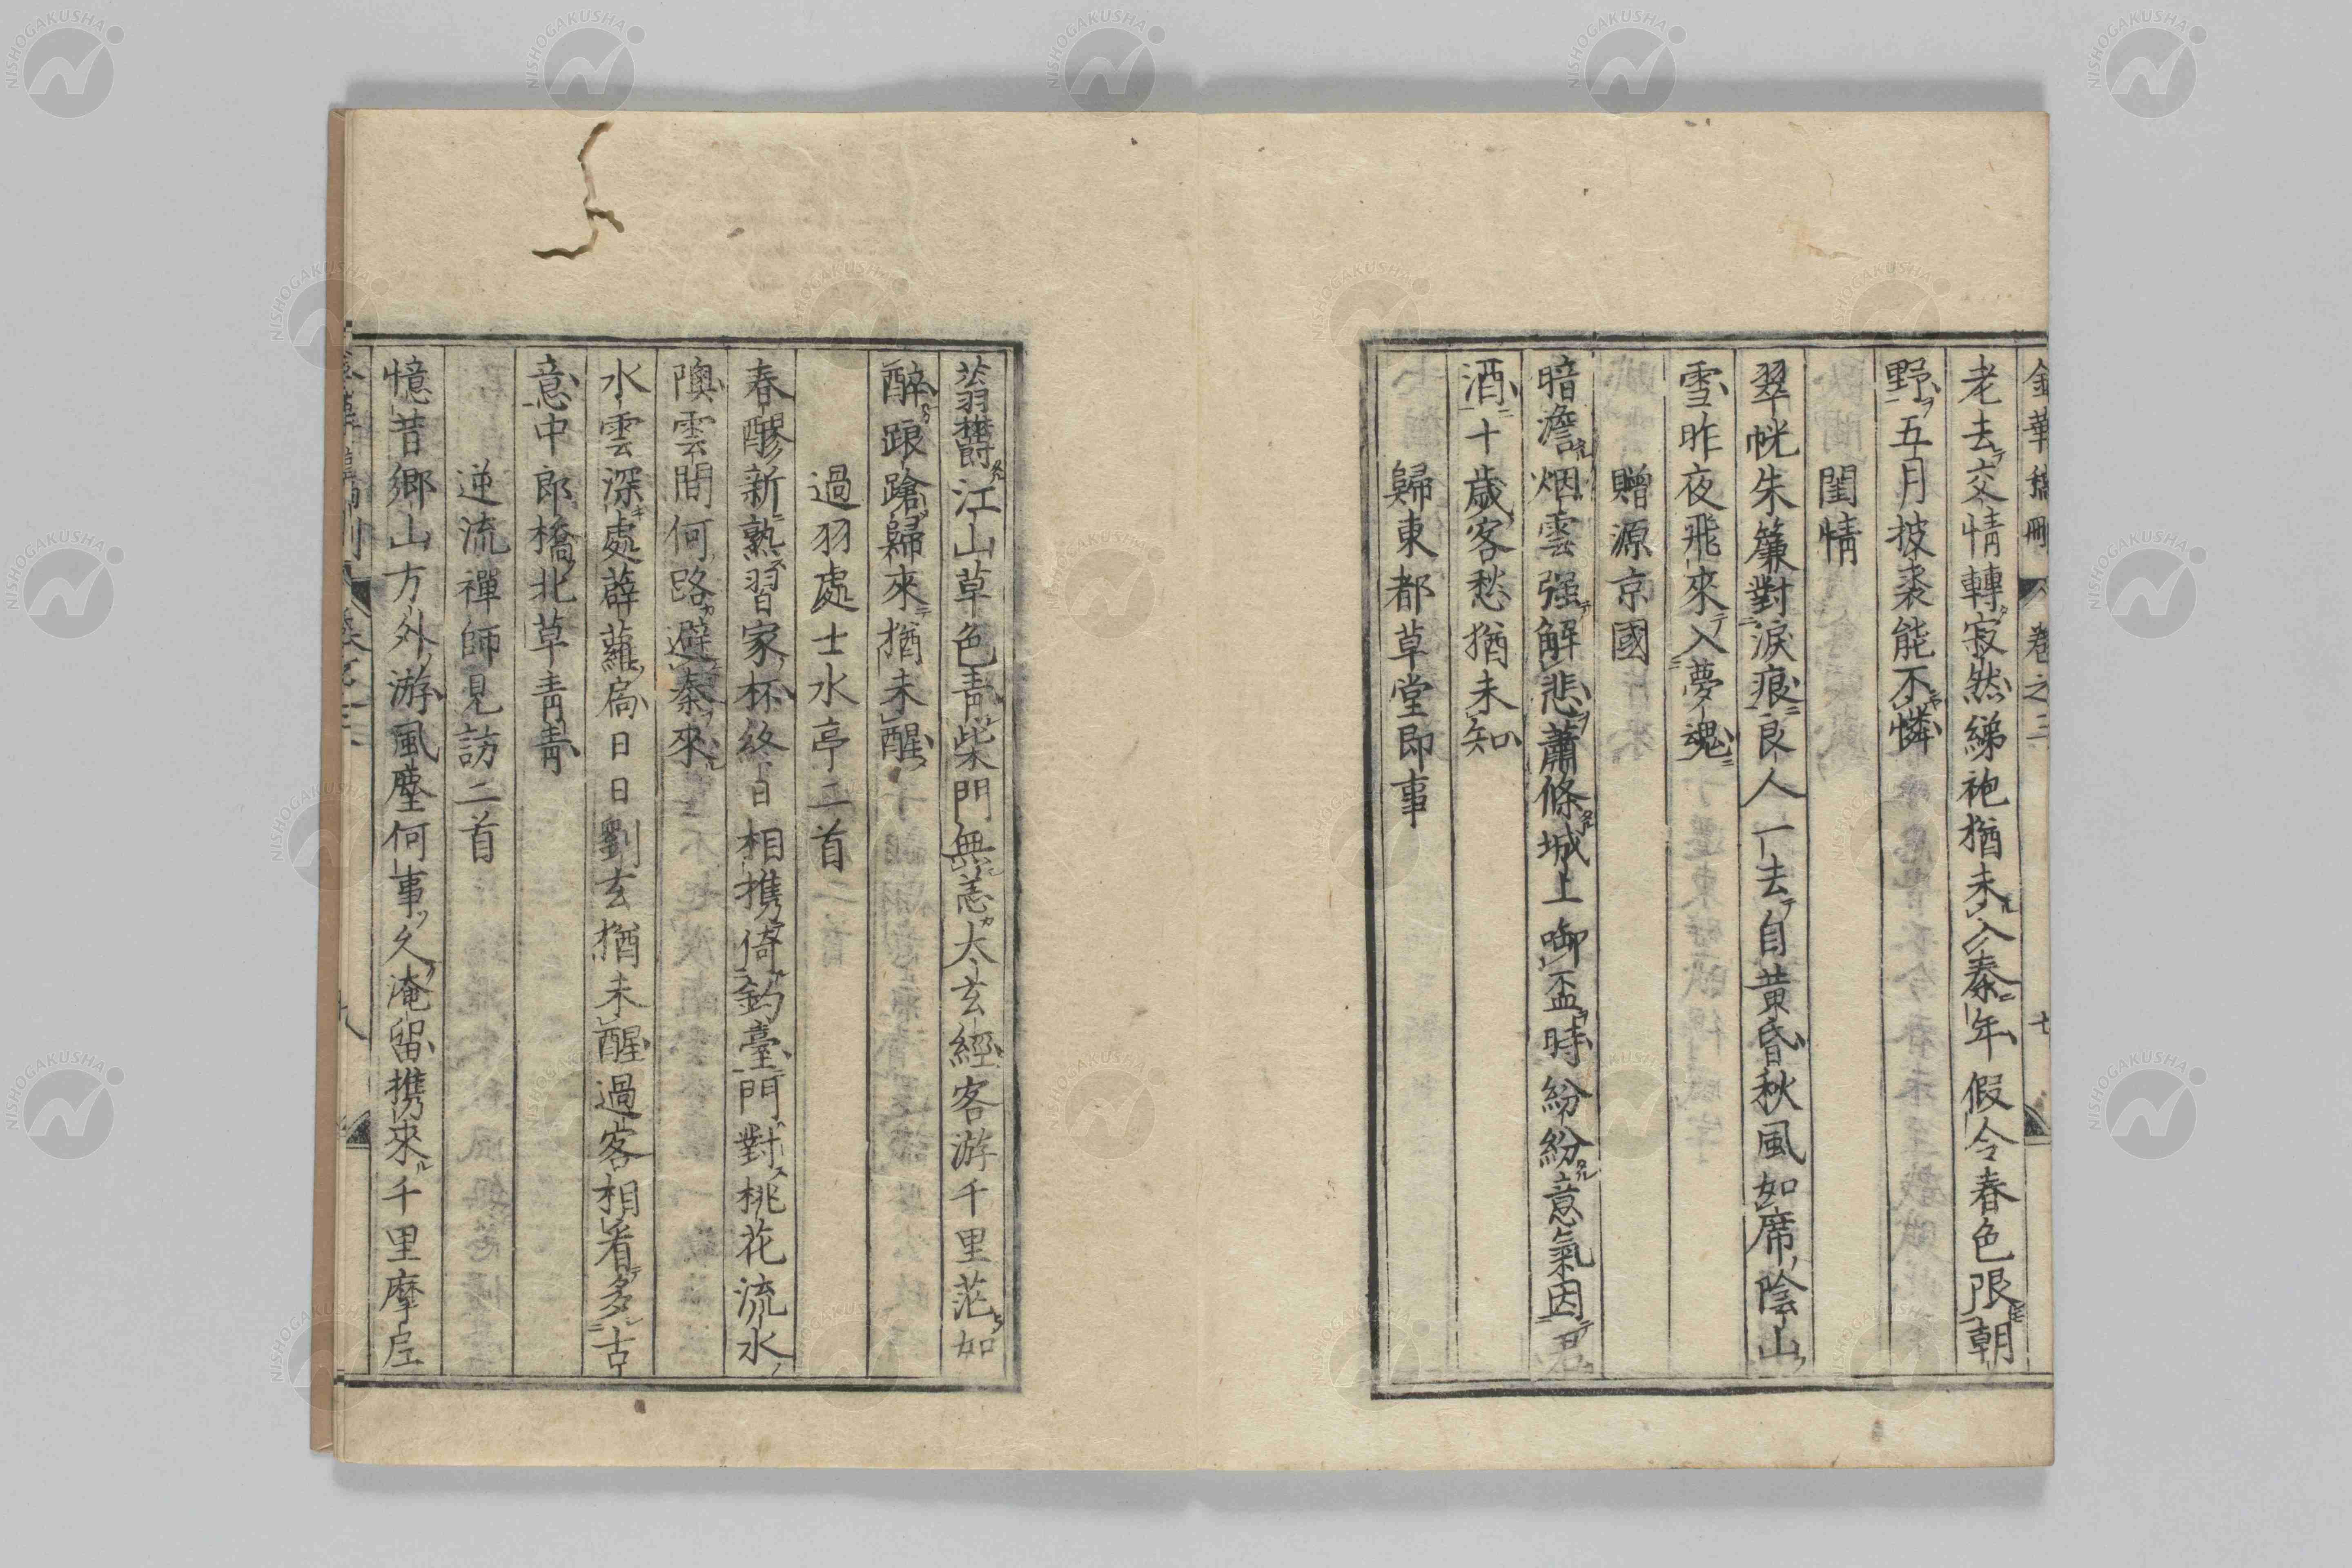 金華稿刪 卷之三 七
老去交情轉寂然綈袍猶未入秦年假令春色限朝
野五月披裘能不憐
閨情
翠幌朱簾對淚痕良人一去自黄昏秋風如席陰山
雪昨夜飛來入夢魂
贈源京國
暗澹烟雲强解悲蕭條城上啣盃時紛紛意氣因君
酒十歲客愁猶未知
歸東都草堂即事
蓊欝江山草色靑柴門無恙太玄經客游千里茫如
醉踉蹌歸來猶未醒
過羽處士水亭二首
春醪新熟習家杯終日相携倚釣臺門對桃花流水
隩雲間何路避秦來
水雲深處薜蘿扃日日劉玄猶未醒過客相看多古
意中郎橋北草靑靑
逆流禪師見訪二首
憶昔鄉山方外游風塵何事久淹留携來千里摩尼
八
NISHOGAKUSHA